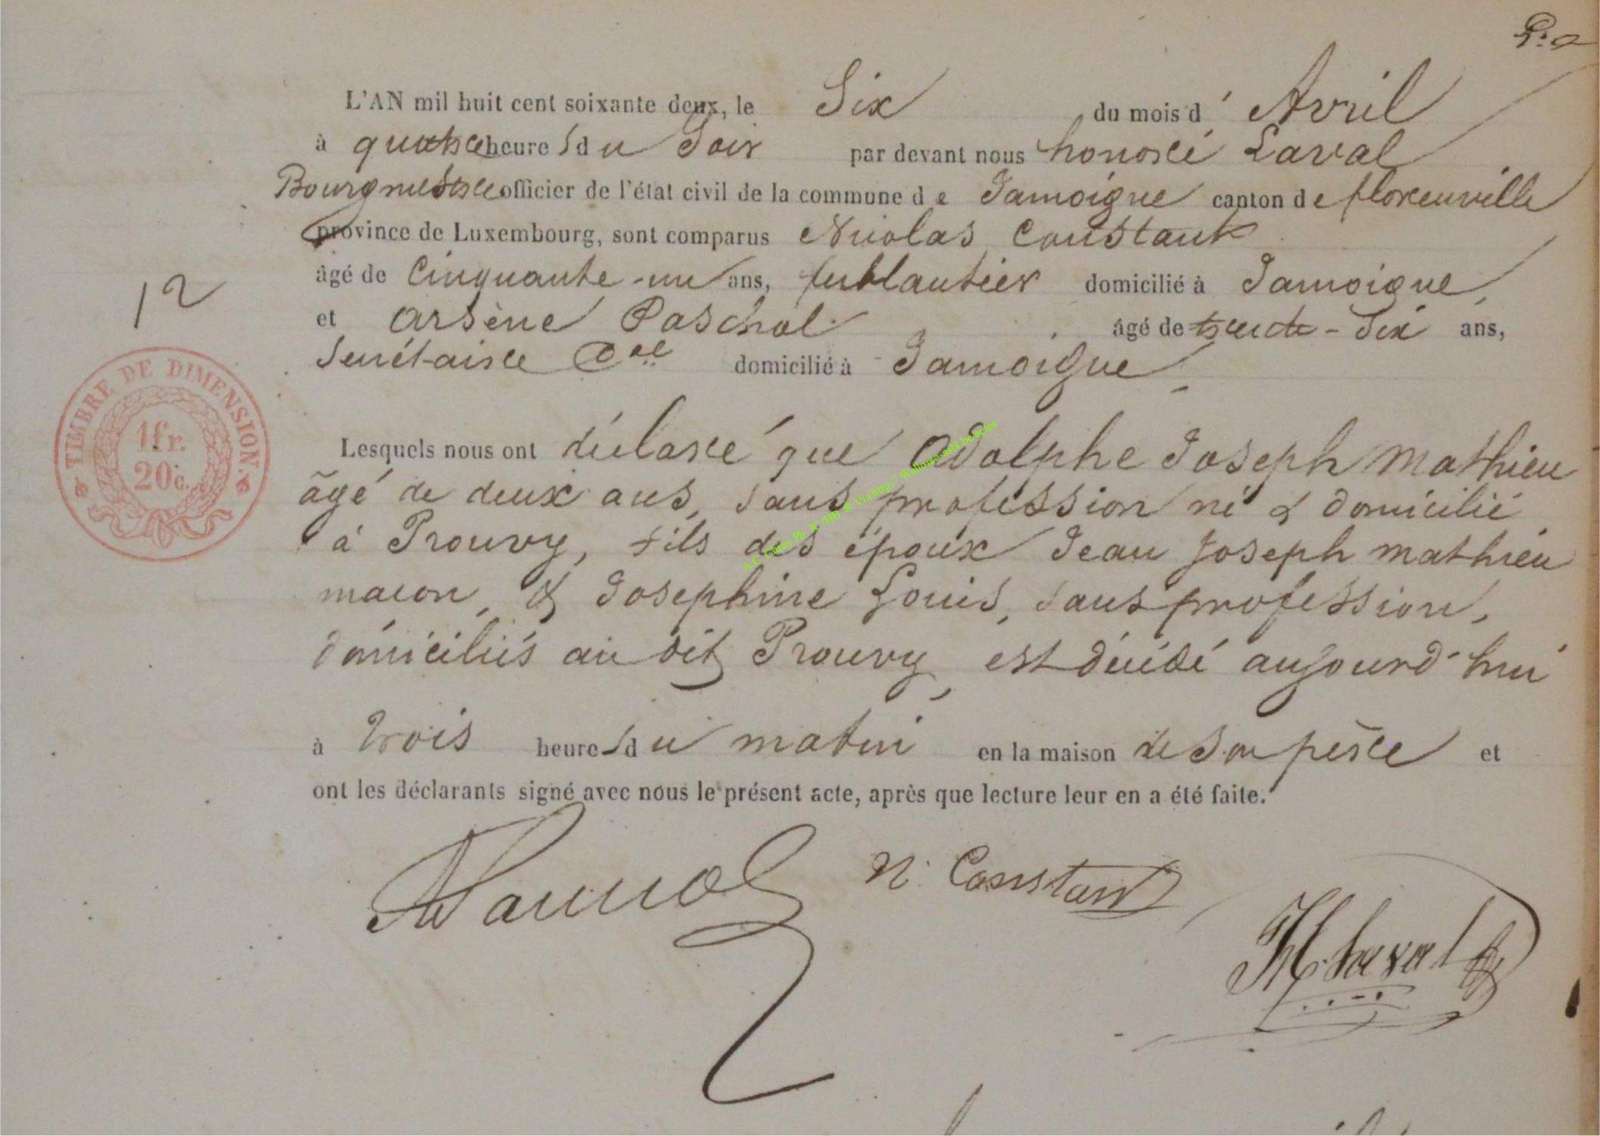 12
TIMBRE DE DIMENSION.
1fr.
20c.
L'AN mil huit cent soixante deux, le Six du mois d'Avril
à quatre heures du Soir par devant nous honoré Laval
Bourgmestre officier de l'état civil de la commune de Jamoigne canton de florenville
province de Luxembourg, sont comparus Nicolas Constant
âgé de Cinquante-un ans, ferblantier domicilié à Jamoigne,
et Arsène Paschal âgé de trente-Six ans,
Secrétaire Cal domicilié à Jamoigne,
Lesquels nous ont déclaré que Adolphe Joseph Mathieu
âgé de deux ans, sans profession né & domicilié
à Prouvy, fils des époux Jean Joseph Mathieu
macon, & Josephine Louis, sans profession,
domiciliés audit Prouvy, est décédé aujourd'hui
à trois heures du matin en la maison de son père et
ont les déclarants signé avec nous le présent acte, après que lecture leur en a été faite.
N. Constant
H. Laval